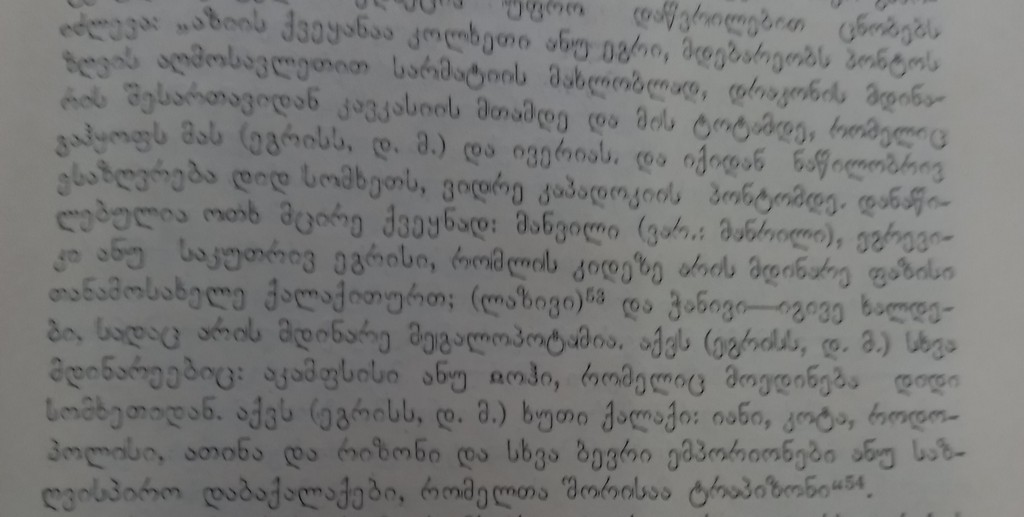 უფრო დაწვრილებით ცნობებს
იძლევა: „აზიის ქვეყანაა კოლხეთი ანუ ეგრი, მდებარეობს პონტოს
ზღვის აღმოსავლეთით სარმატიის მახლობლად, დრაკონის მდინა-
რის შესართავიდან კავკასიის მთამდე და მის ტოტამდე, რომელიც
გაჰყოფს მას (ეგრისს, დ. მ.) და ივერიას. და იქიდან ნაწილობრივ
ესაზღვრება დიდ სომხეთს, ვიდრე კაპადოკიის პონტომდე. დანაწი-
ლებულია ოთხ მცირე ქვეყნად: მანვილი (ვარ.: მანრილი), ეგრევი-
კი ანუ საკუთრივ ეგრისი, რომლის კიდეზე არის მდინარე ფაზისი
თანამოსახელე ქალაქითურთ; (ლაზივი)⁵³ და ჭანივი—იგივე ხალდე-
ბი, სადაც არის მდინარე მეგალოპოტამია. აქვს (ეგრისს, დ. მ.) სხვა
მდინარეებიც: აკამფსისი ანუ ჲოჰი, რომელიც მოედინება დიდი
სომხეთიდან. აქვს (ეგრისს, დ. მ.) ხუთი ქალაქი: იანი, კოტა, როდო-
პოლისი, ათინა და რიზონი და სხვა ბევრი ემპორიონები ანუ საზ-
ღვისპირო დაბაქალაქები, რომელთა შორისაა ტრაპიზონი“⁵⁴.